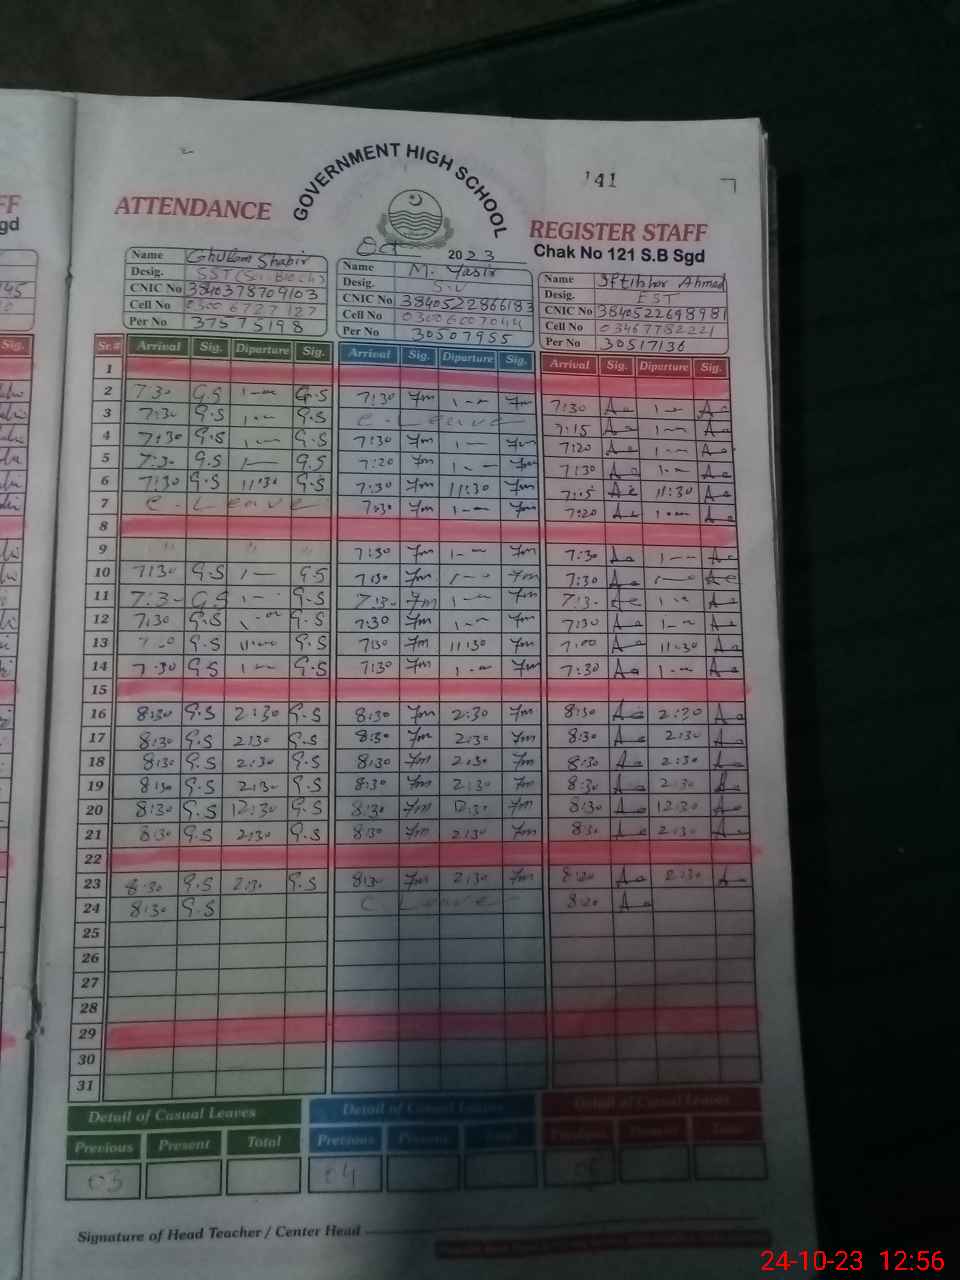 141
GOVERNMENT HIGH SCHOOL
ATTENDANCE
REGISTER STAFF
Oct 2023
Chak No 121 S.B Sgd
Name Ghulam Shabir
Desig. SST (Sci. Bio Ch)
CNIC No 3840378709103
Cell No 0300 6727127
Per No 37575198
Name M. Yasir
Desig. S.V
CNIC No 3840522866183
Cell No
Per No 30507955
Name Iftikhar Ahmad
Desig. EST
CNIC No 3840522698981
Cell No 03467782221
Per No 30517136
Sr.# Arrival Sig. Diparture Sig. Arrival Sig. Diparture Sig. Arrival Sig. Diparture Sig.
1
2 7:30 G.S 1-00 G.S 7:30 1-00 7:30 1-00
3 7:30 G.S 1-00 G.S C. Leave 7:15 1-00
4 7:30 G.S 1-00 G.S 7:30 1-00 7:20 1-00
5 7:30 G.S 1-00 G.S 7:20 1-00 7:30 1-00
6 7:30 G.S 11:30 G.S 7:30 11:30 7:15 11:30
7 C. Leave 7:30 1-00 7:20 1-00
8
9 " " " 7:30 1-00 7:30 1-00
10 7:30 G.S 1-00 G.S 7:30 1-00 7:30 1-00
11 7:30 G.S 1-00 G.S 7:30 1-00 7:30 1-00
12 7:30 G.S 1-00 G.S 7:30 1-00 7:30 1-00
13 G.S G.S 7:30 11:30 7:00 11:30
14 7:30 G.S 1-00 G.S 7:30 1-00 7:30 1-00
15
16 8:30 G.S 2:30 G.S 8:30 2:30 8:30 2:30
17 8:30 G.S 2:30 G.S 8:30 2:30 8:30 2:30
18 8:30 G.S 2:30 G.S 8:30 2:30 8:30 2:30
19 8:30 G.S 2:30 G.S 8:30 2:30 8:30 2:30
20 8:30 G.S 12:30 G.S 8:30 12:30 8:30 12:30
21 8:30 G.S 2:30 G.S 8:30 2:30 8:30 2:30
22
23 8:30 G.S 2:30 G.S 8:30 2:30 8:20 2:30
24 8:30 G.S C. Leave 8:20
25
26
27
28
29
30
31
Detail of Casual Leaves Detail of Casual Leaves Detail of Casual Leaves
Previous Present Total Previous Present Total Previous Present Total
03 04
Signature of Head Teacher / Center Head
24-10-23 12:56